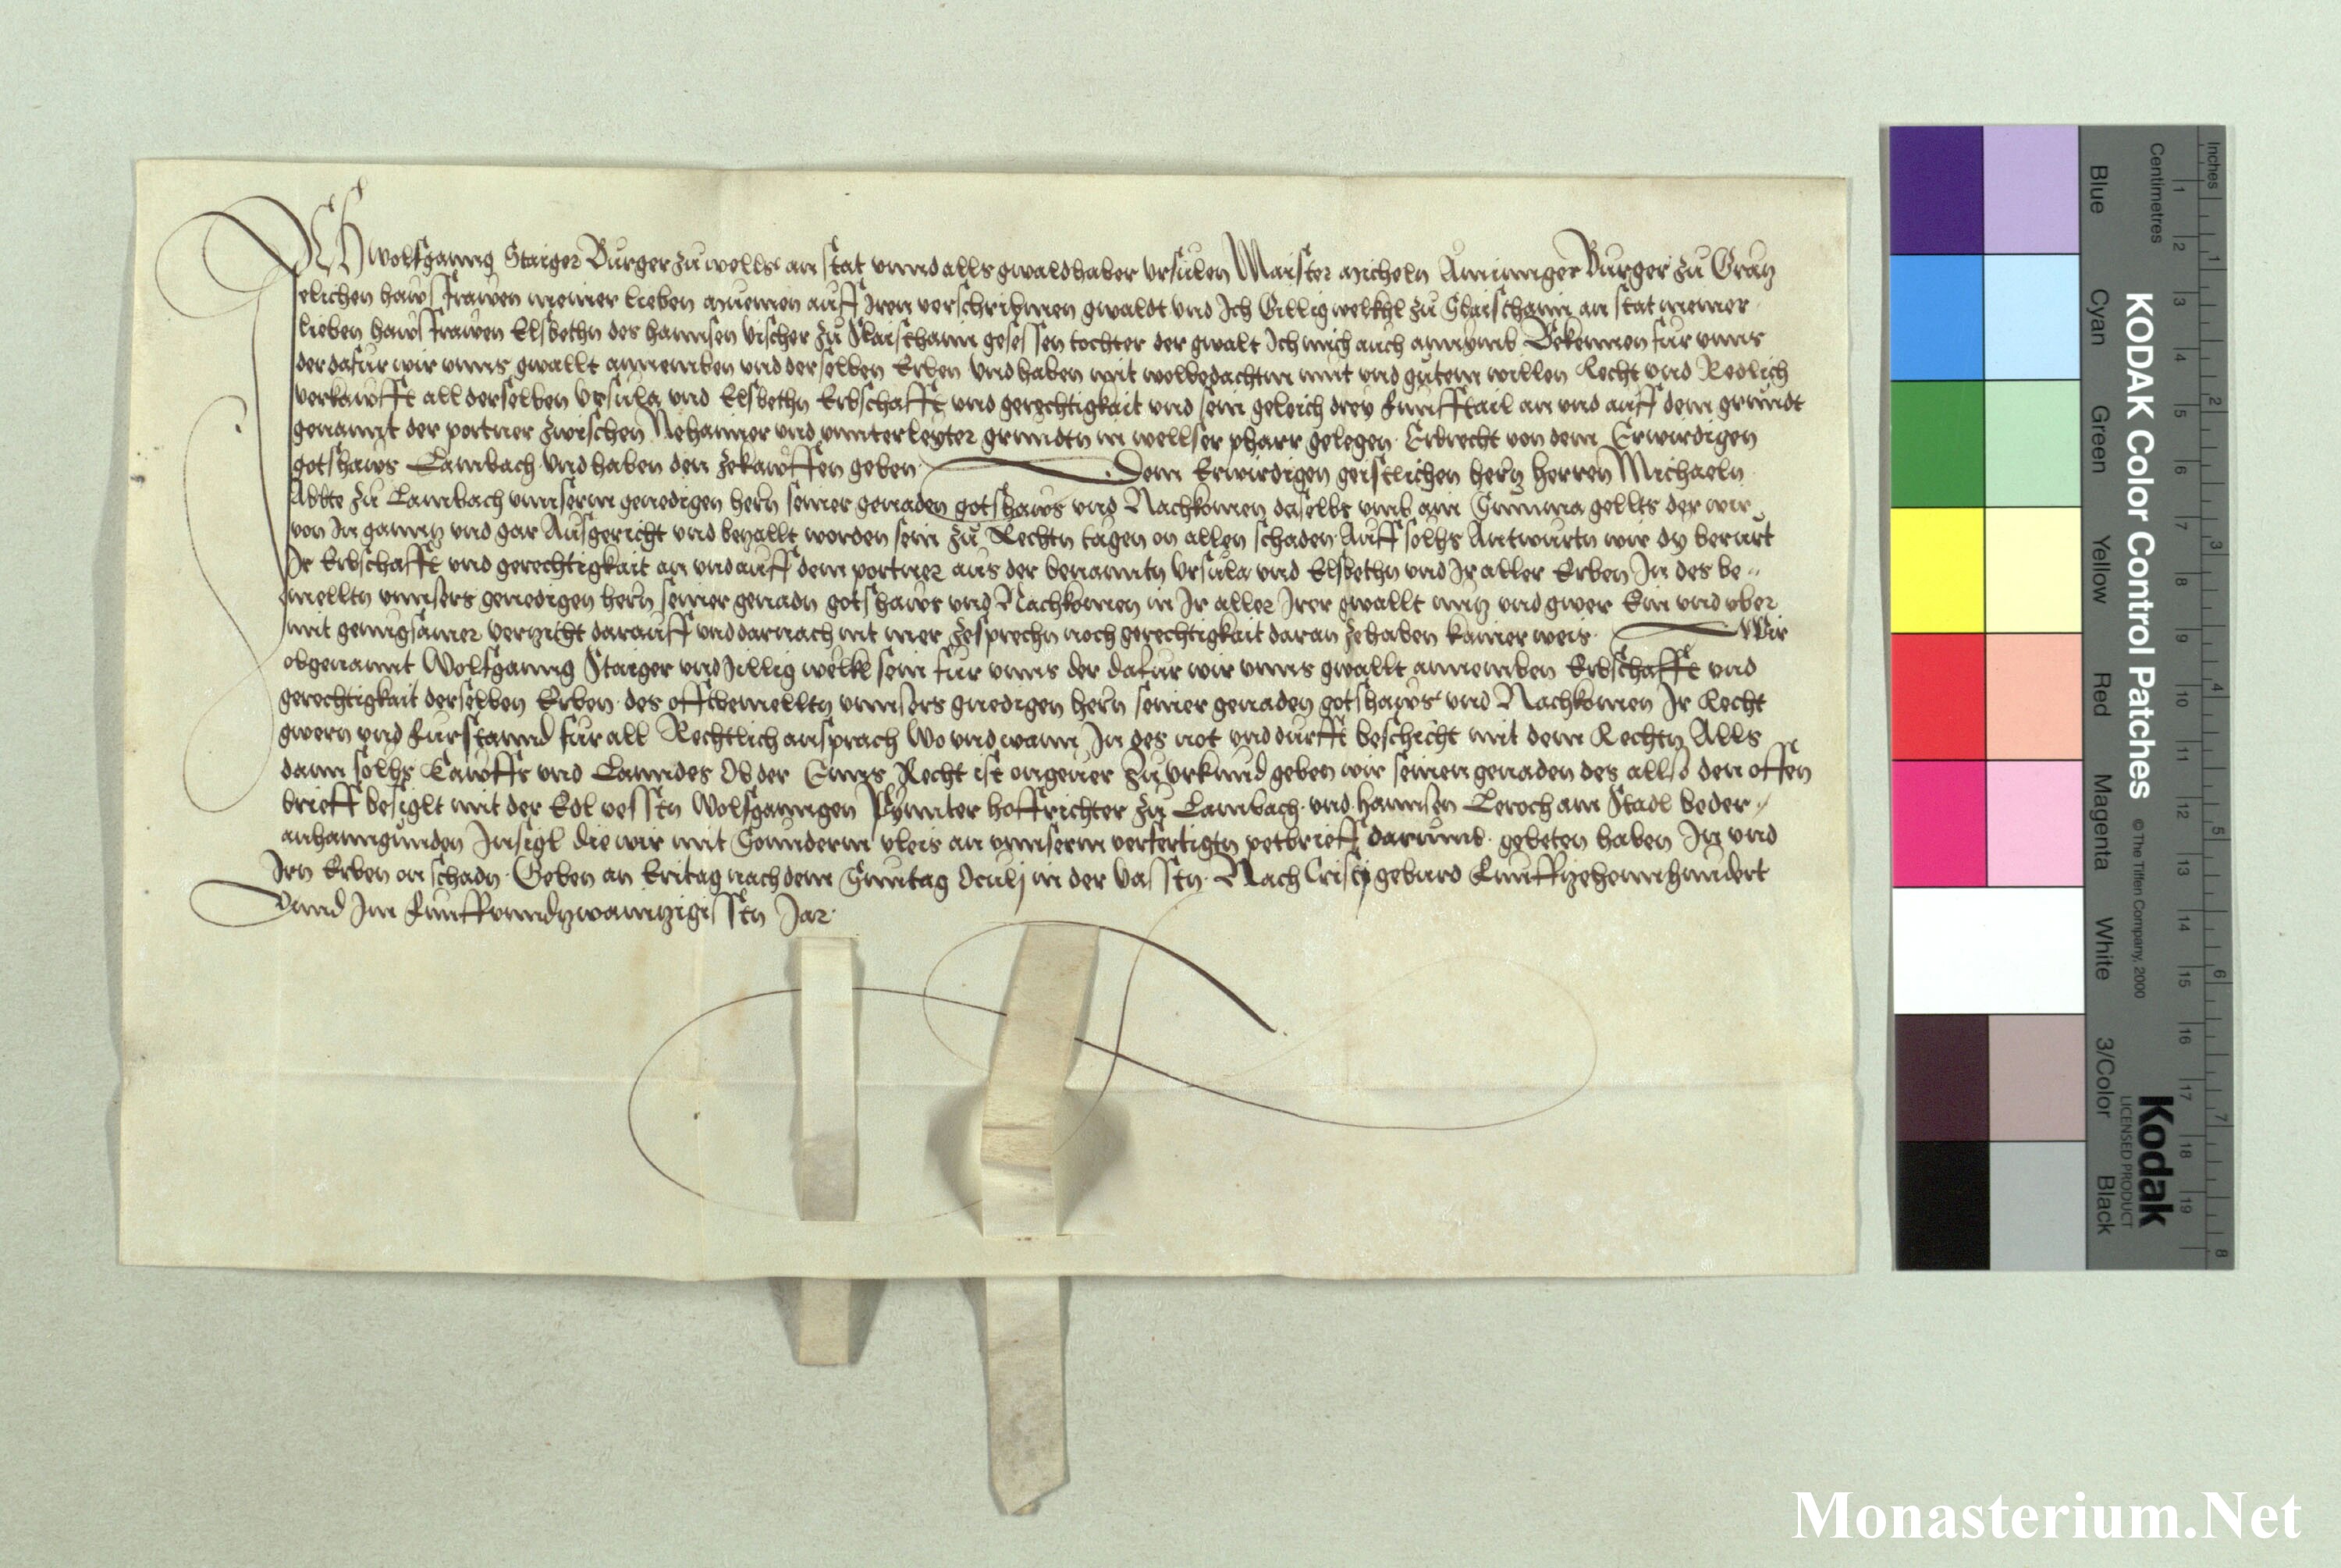 Ich Wolfganng Staiger Burger zu wells an stat vnnd alls gwaldhaber vrsulen Maister micheln Burger zu Grätz
elichen hawsfrawen meiner lieben muemen auff Iren verschribnen gwaldt vnd Ich Gillig welkhl zu an stat meiner
lieben hawsfrawen Elsbethn des hannsen vischer zu gesessen tochter der gwalt Ich mich auch annymb Bekennen fur vnns
der dafur wir vnns gwallt annemben vnd derselben Erben Vnd haben mit wolbedachtm mut vnd gutem willen Recht vnd Redlich
verkawfft all derselben Vrsula vnd Elsbethn Erbschafft vnd gerechtigkait vnd sein geleich drey funfftail an vnd auff dem grundt
genannt der portner zwischen vnd grundtn in wellser pharr gelegen Erbrecht von dem Erwirdigen
gotshaws Lambach Vnd haben den zekawffen geben Dem Erwirdigen geistlichen hern herren Michaeln
Abbte zu Lambach vnnserm genedigen hern seiner genaden gotshaws vnd Nachkomen daselbs vmb ain Summa gellts der wir
von In ganntz vnd gar Ausgericht vnd bezallt worden sein zu Rechtn tagen on allen schaden Auff solhs Antwurtn wir dy berurt
Ir Erbschafft vnd gerechtigkait an vnd auff dem portner aus der benanntn Vrsula vnd Elsbethn vnd Ir aller Erben In des be-
melltn vnnsers genedigen hern seiner genadn gotshaws vnd Nachkomen in Ir aller Irer gwallt nutz vnd gwer Ein vnd vber
mit genugsamer verzicht darauff vnd darnach nit mer zesprechn noch gerechtigkait daran zehaben kainer weis Wir
obgenannt Wolfganng Staiger vnd Gillig welkl sein fur vnns der dafur wir vnns gwallt annemben Erbschafft vnd
gerechtigkait derselben Erben des offtbemelltn vnnsers gnedigen hern seiner genaden gotshaws vnd Nachkomen Ir Recht
gwern vnd furstannd fur all Rechtlich ansprach Wo vnd wann In des not vnd durfft beschicht mit dem Rechtn Alls
dann solhs kawffs vnd Lanndes Ob der Enns Recht ist ongeuer Zu vrkund geben wir seinen genaden des allso den offen
brieff besiglt mit der Edl vesstn Wolfganngen hoffrichter zu Lambach vnd hannsen am Stadl beder
anhanngunden Insigl die wir mit Sounderm vleis an vnnserm verfertigtn petbrieff darumb gebeten haben In vnd
Irn Erben on schadn Geben an Eritag nach dem Sunntag Oculj in der Vasstn Nach Cristj geburd funffzehennhundert
Vnnd Im funffvnndzwainnzigisstn Jar
KODAK Color Control Patches © The Tiffen Company, 2000
Kodak
LICENSED PRODUCT
Inches
Centimetres
Blue Cyan Green Yellow Red Magenta White 3/Color Black
1 2 3 4 5 6 7 8 9 10 11 12 13 14 15 16 17 18 19
1 2 3 4 5 6 7 8
Monasterium.Net